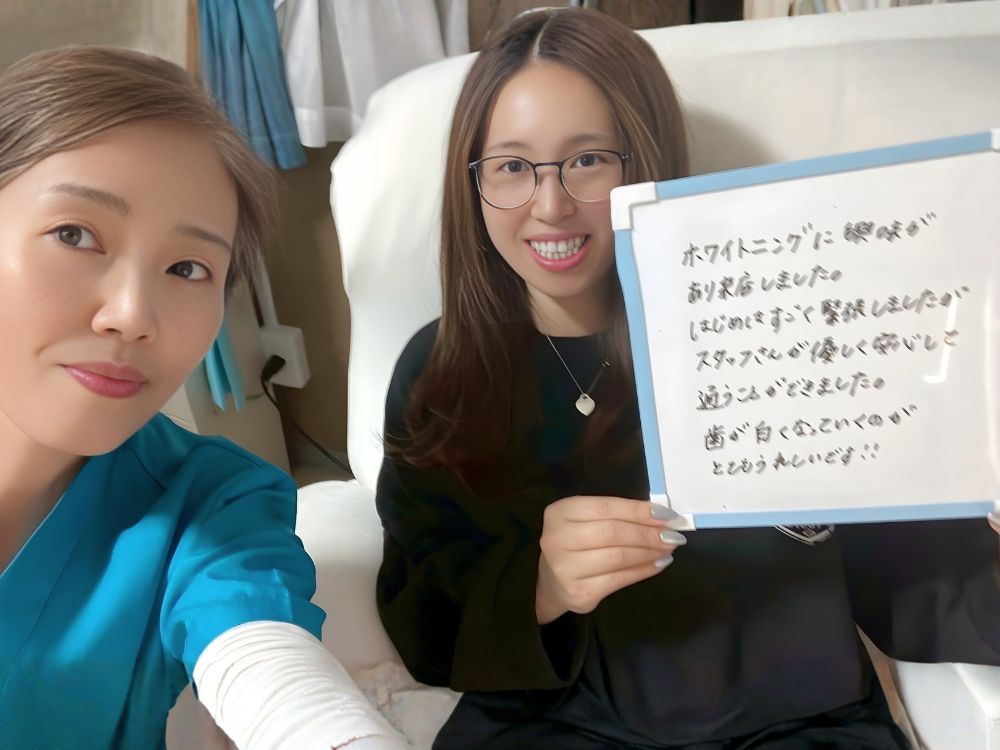 ホワイトニングに興味が
あり来店しました。
はじめはすごく緊張しましたが
スタッフさんが優しく安心して
通うことができました。
歯が白くなっていくのが
とてもうれしいです!!